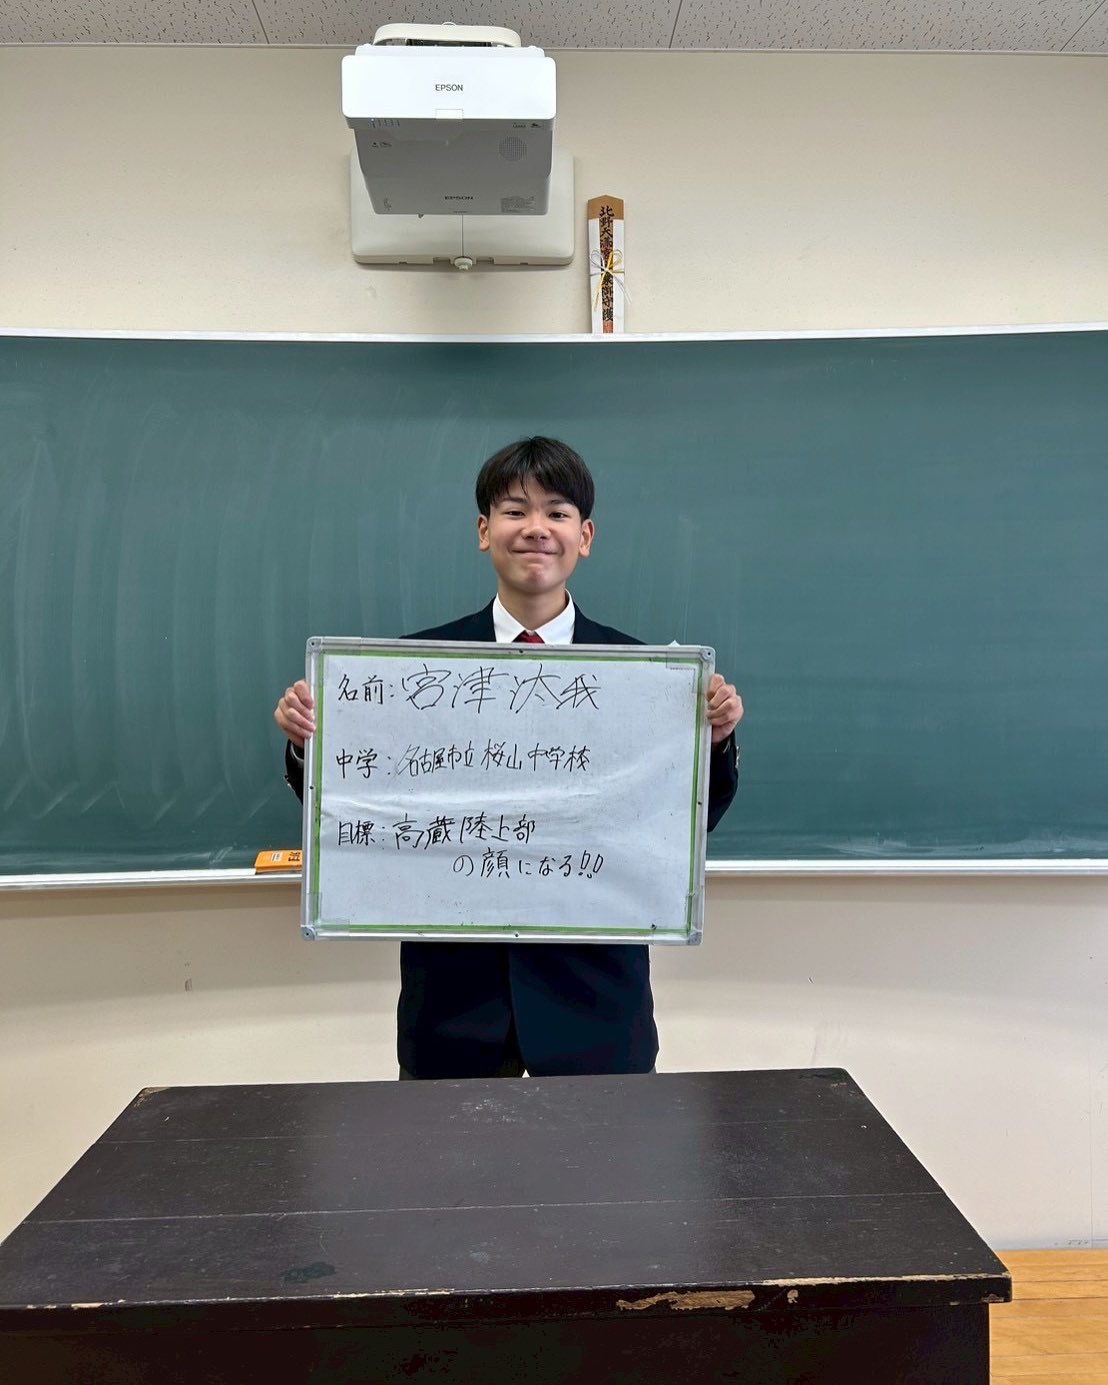 EPSON
EPSON
名前:宮津汰我
中学:名古屋市立桜山中学校
目標:高蔵陸上部
の顔になる!!